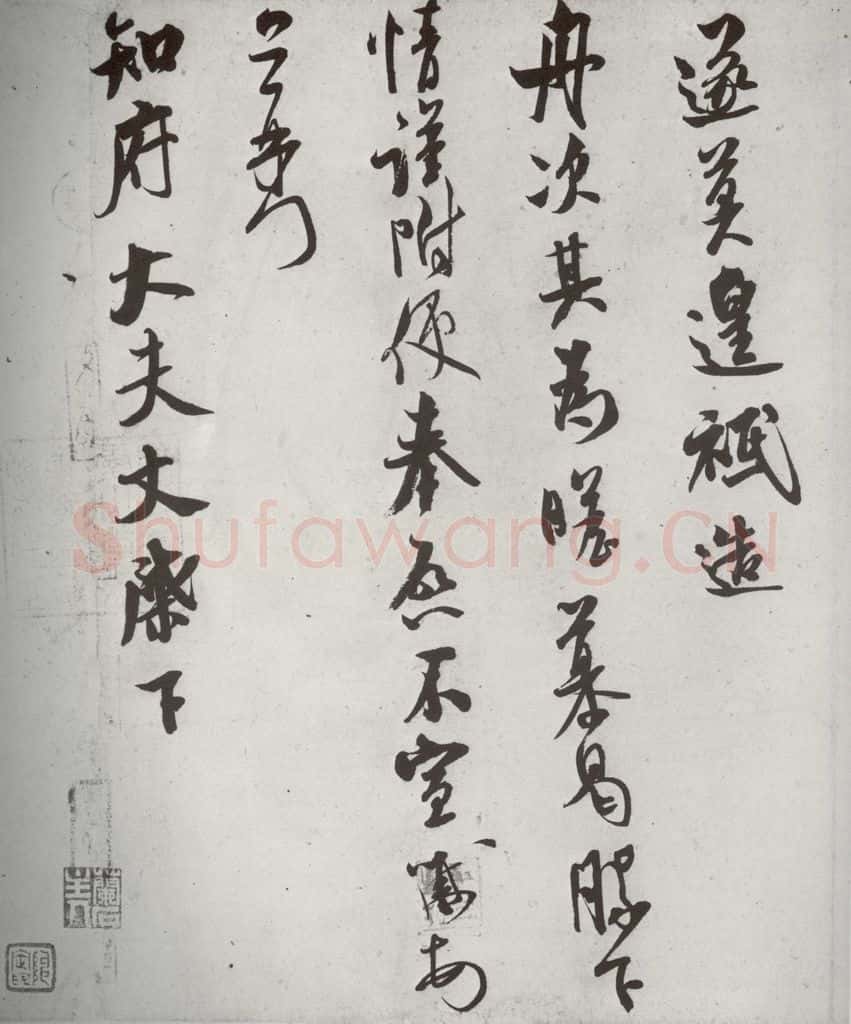 遂莫遑祗造
舟次其為瞻慕曷勝下
情謹附便奉啓不宣
知府大夫丈棨下
Shufawang.CN